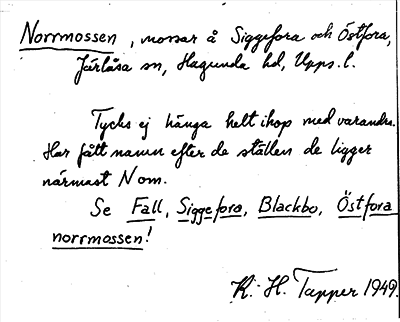 Norrmossen, mossar å Siggefora och Östfora,
Järlåsa sn, Hagunda hd, Upps. l.
Tycks ej hänga helt ihop med varandra.
Har fått namn efter de ställen de ligger
närmast N om.
Se Fall, Siggefora, Blackbo, Östfora
norrmossen!
K. H. Tapper 1949.